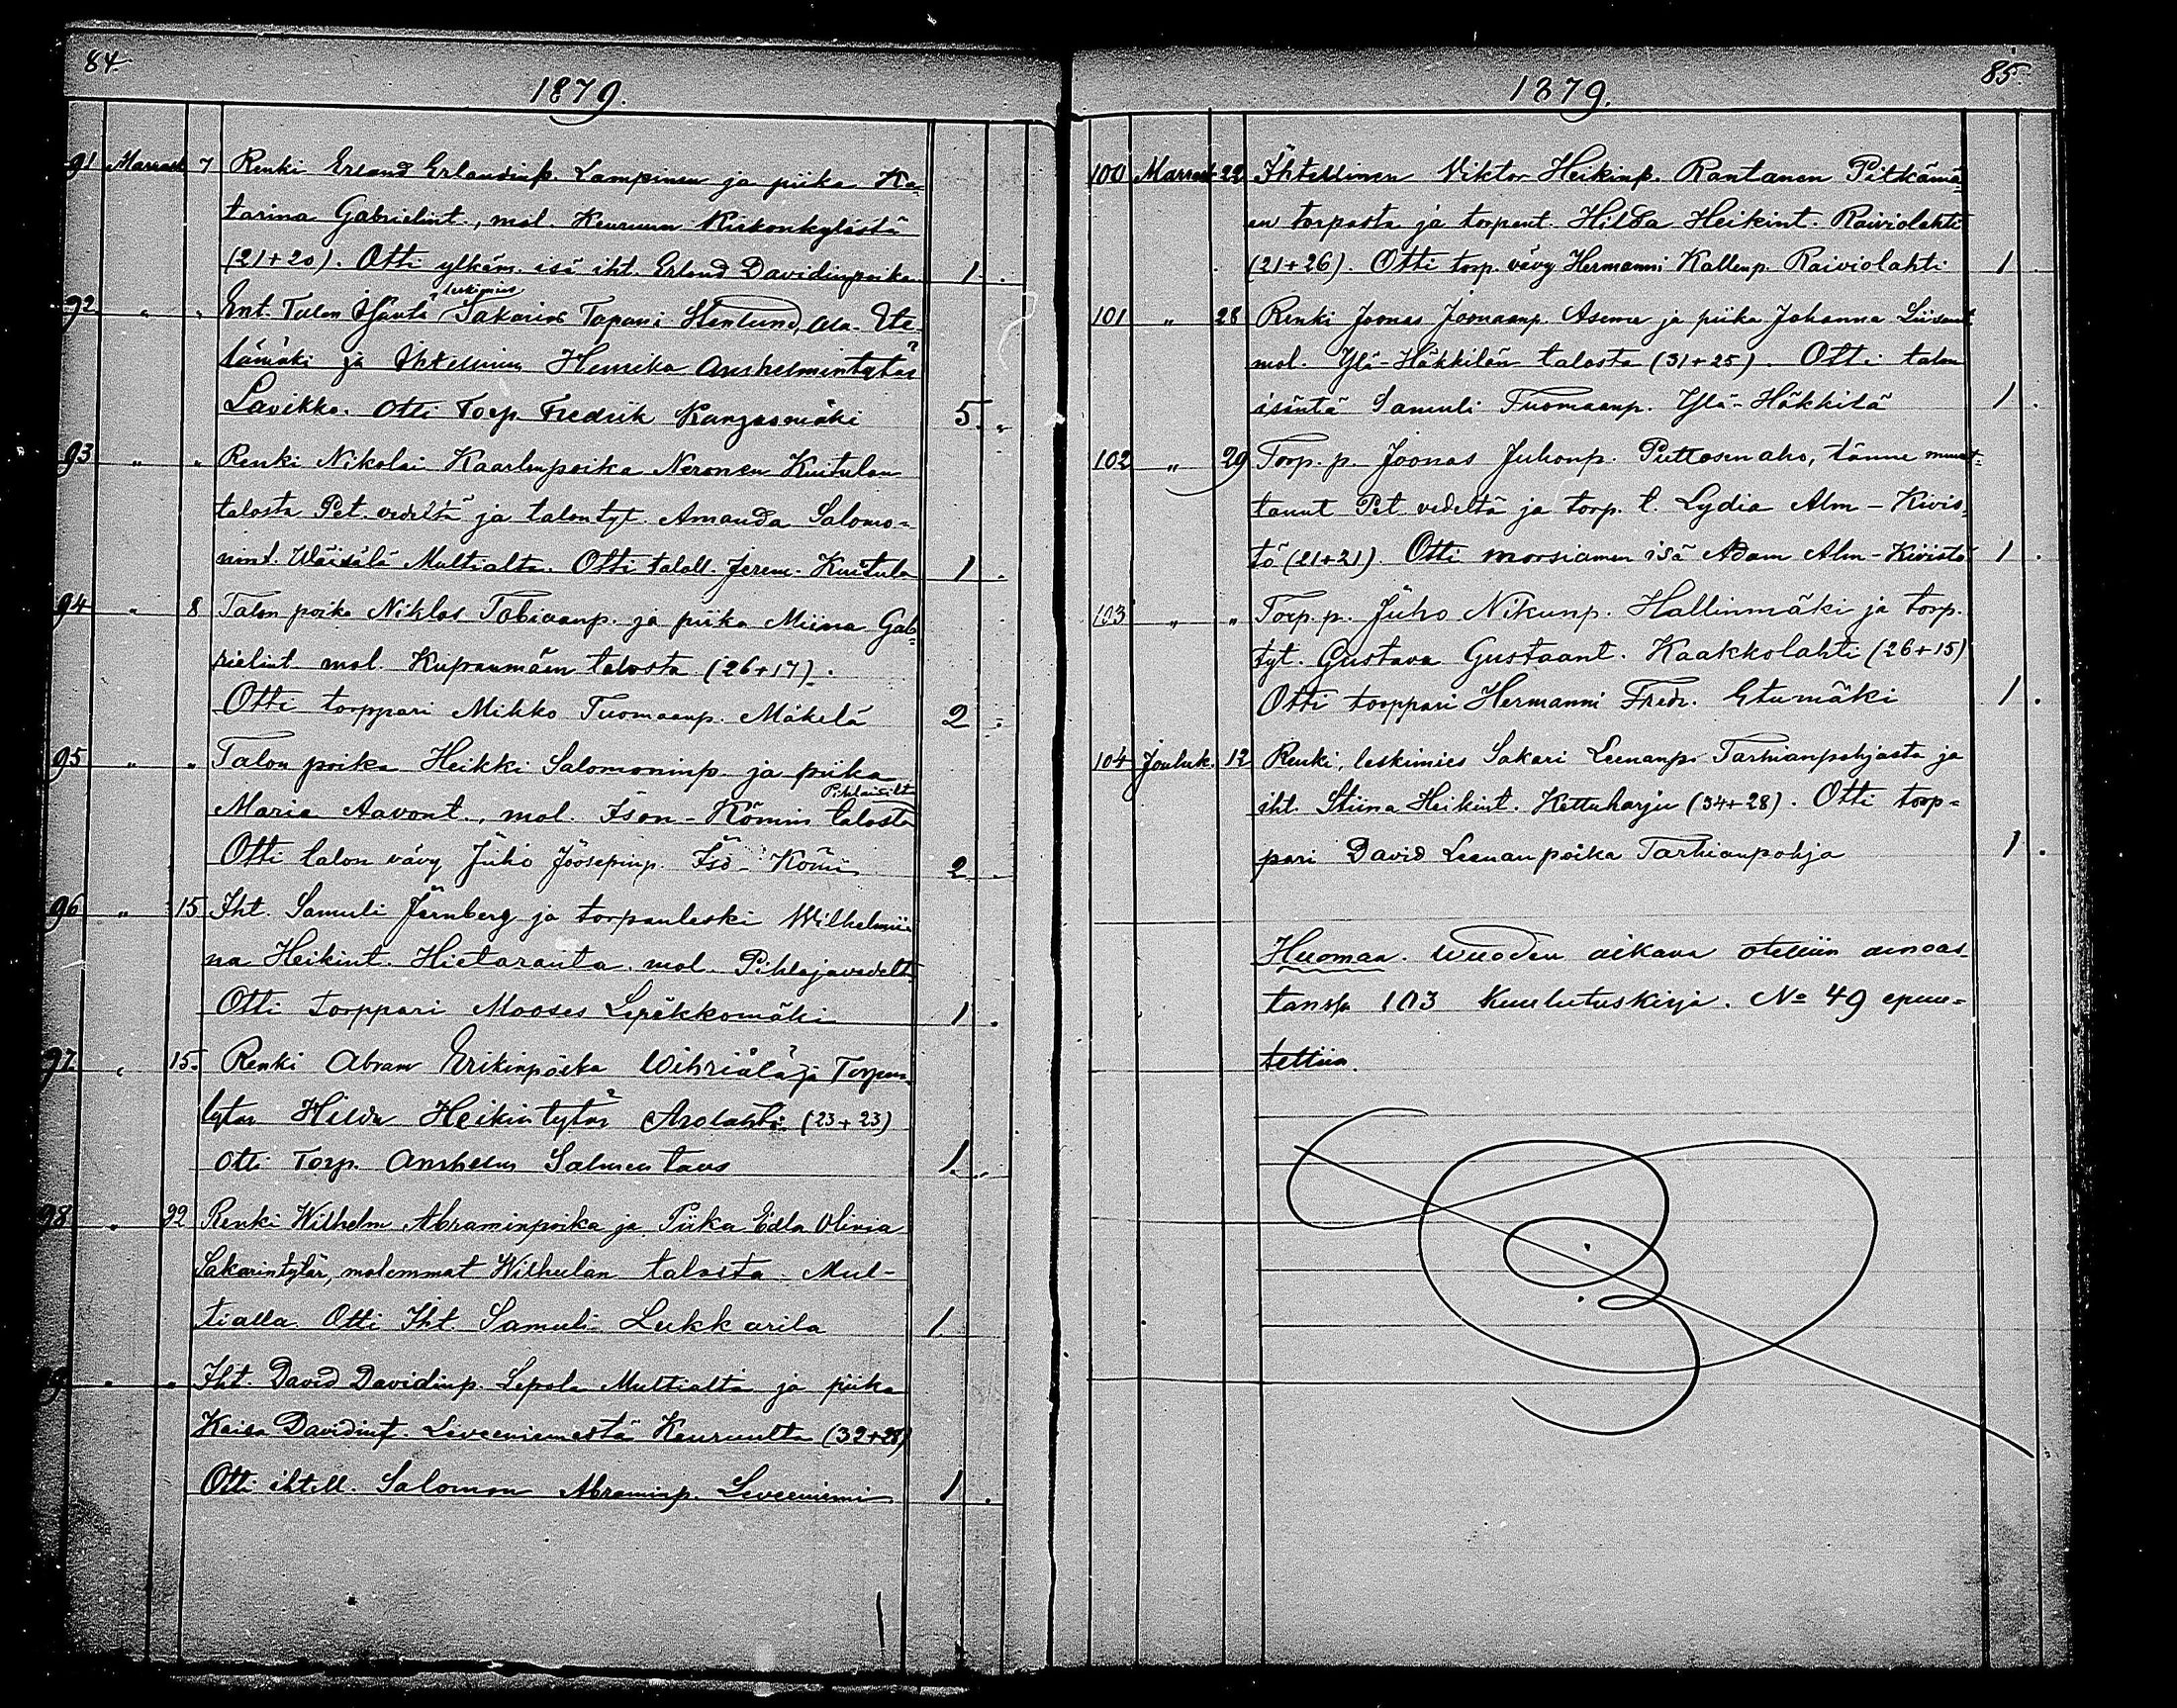 84.
1879.
91 Marrask 7 Renki Erland Erlandinp. Lampinen ja piika Ka-
tarina Gabrielint., mol. Keuruun Kirkonkylästä
(21+20). Otti ylkäm. isä iht. Erland Davidinpoika. 1 .
92 " " Ent. Talon Isäntä leskimies Sakarias Tapani Stenlund, Ala- Ete-
lämäki ja Ihtellinen Henrika Anshelmintytär
Lavikko. Otti Torp. Fredrik Kangasmäki 5. "
93 " " Renki Nikolai Kaarlenpoika Neronen Kuitulan
talosta Pet. vedeltä ja talontyt. Amanda Salomo-
nint. Wäisälä Multialta. Otti taloll. Jerem. Kuitula 1 .
94 " 8 Talon poika Niklas Tobiaanp. ja piika Miina Gab-
rielint. mol. Kupanmäen talosta (26+17).
Otti torppari Mikko Tuomaanp. Mäkelä 2 .
95 " " Talon poika Heikki Salomoninp. ja piika
Maria Aavont., mol. Ison-Kömin talosta
Otti talon vävy Juho Jooseping. Iso-Kömi 2 .
96 " 15 Iht. Samuli Järnberg ja torpanleski Wilhelmii-
na Heikint. Hietaranta mol. Pihlajavedelt
Otti torppari Mooses Lepäkkomäki 1 .
97 " 15. Renki Abram Erikinpoika Wihriälä ja Torpan-
tytär Hilda Heikintytär Arolahti (23+23)
Otti Torp. Anshelm Salmentaus 1. "
98 " 22 Renki Wilhelm Abraminpoika ja Piika Edla Olivia
Sakarintytär, molemmat Wilhulan talosta Mul-
tialla. Otti Iht. Samuli Lukkarila 1
99 " " Iht. David Davidinp. Lepola Multialta ja piika
Kaisa Davidint. Leveeniemestä Keuruulta (32+28)
Otti ihtell. Salomon Abraminp. Leveeniemi 1 .
85.
1879.
100 Marrask 22 Ihtellinen Viktor Heikinp. Rantanen Pitkämä-
en torpasta ja torpant. Hilda Heikint. Raiviolahti
(21+26). Otti torp. vävy Hermanni Kallenp. Raiviolahti 1 .
101 " 28 Renki Joonas Joonaanp. Asema ja piika Johanna Liisant.
mol. Ylä-Häkkilän talosta (31+25). Otti talon
isäntä Samuli Tuomaanp. Ylä-Häkkilä 1 .
102 " 29 Torp. p. Joonas Juhonp. Puttosenaho, tänne muut-
tanut Pet. vedeltä ja torp. t. Lydia Alm-Kivis-
tö (21+21). Otti morsiamen isä Adam Alm-Kivistö 1 .
103 " " Torp. p. Juho Nikunp. Hallinmäki ja torp.
tyt. Gustava Gustaant. Kaakkolahti (26+15)
Otti torppari Hermanni Fredr. Etumäki 1 .
104 Jouluk. 12 Renki, leskimies Sakari Leenanp. Tarhianpohjasta ja
iht. Stiina Heikint. Kettuharju (34+28). Otti torp-
pari David Leenanpoika Tarhianpohja 1 .
Huomaa. Wuoden aikana otettiin ainoas-
tansa 103 kuulutuskirja. No 49 epuu-
tettiin.